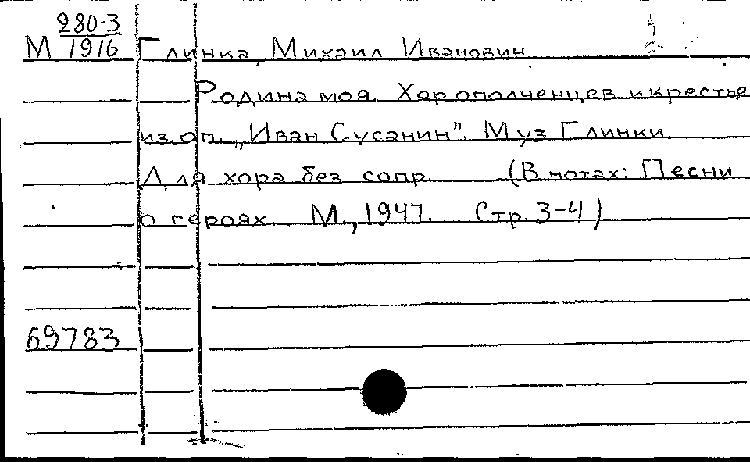 280-3
М 1916 Глинка, Михаил Иванович.
Родина моя. Хор ополченцев и крестьян
из оп. „Иван Сусанин". Муз Глинки.
Для хора без сопр. (В нотах: Песни
о героях. М., 1947. Стр. 3-4)
69783